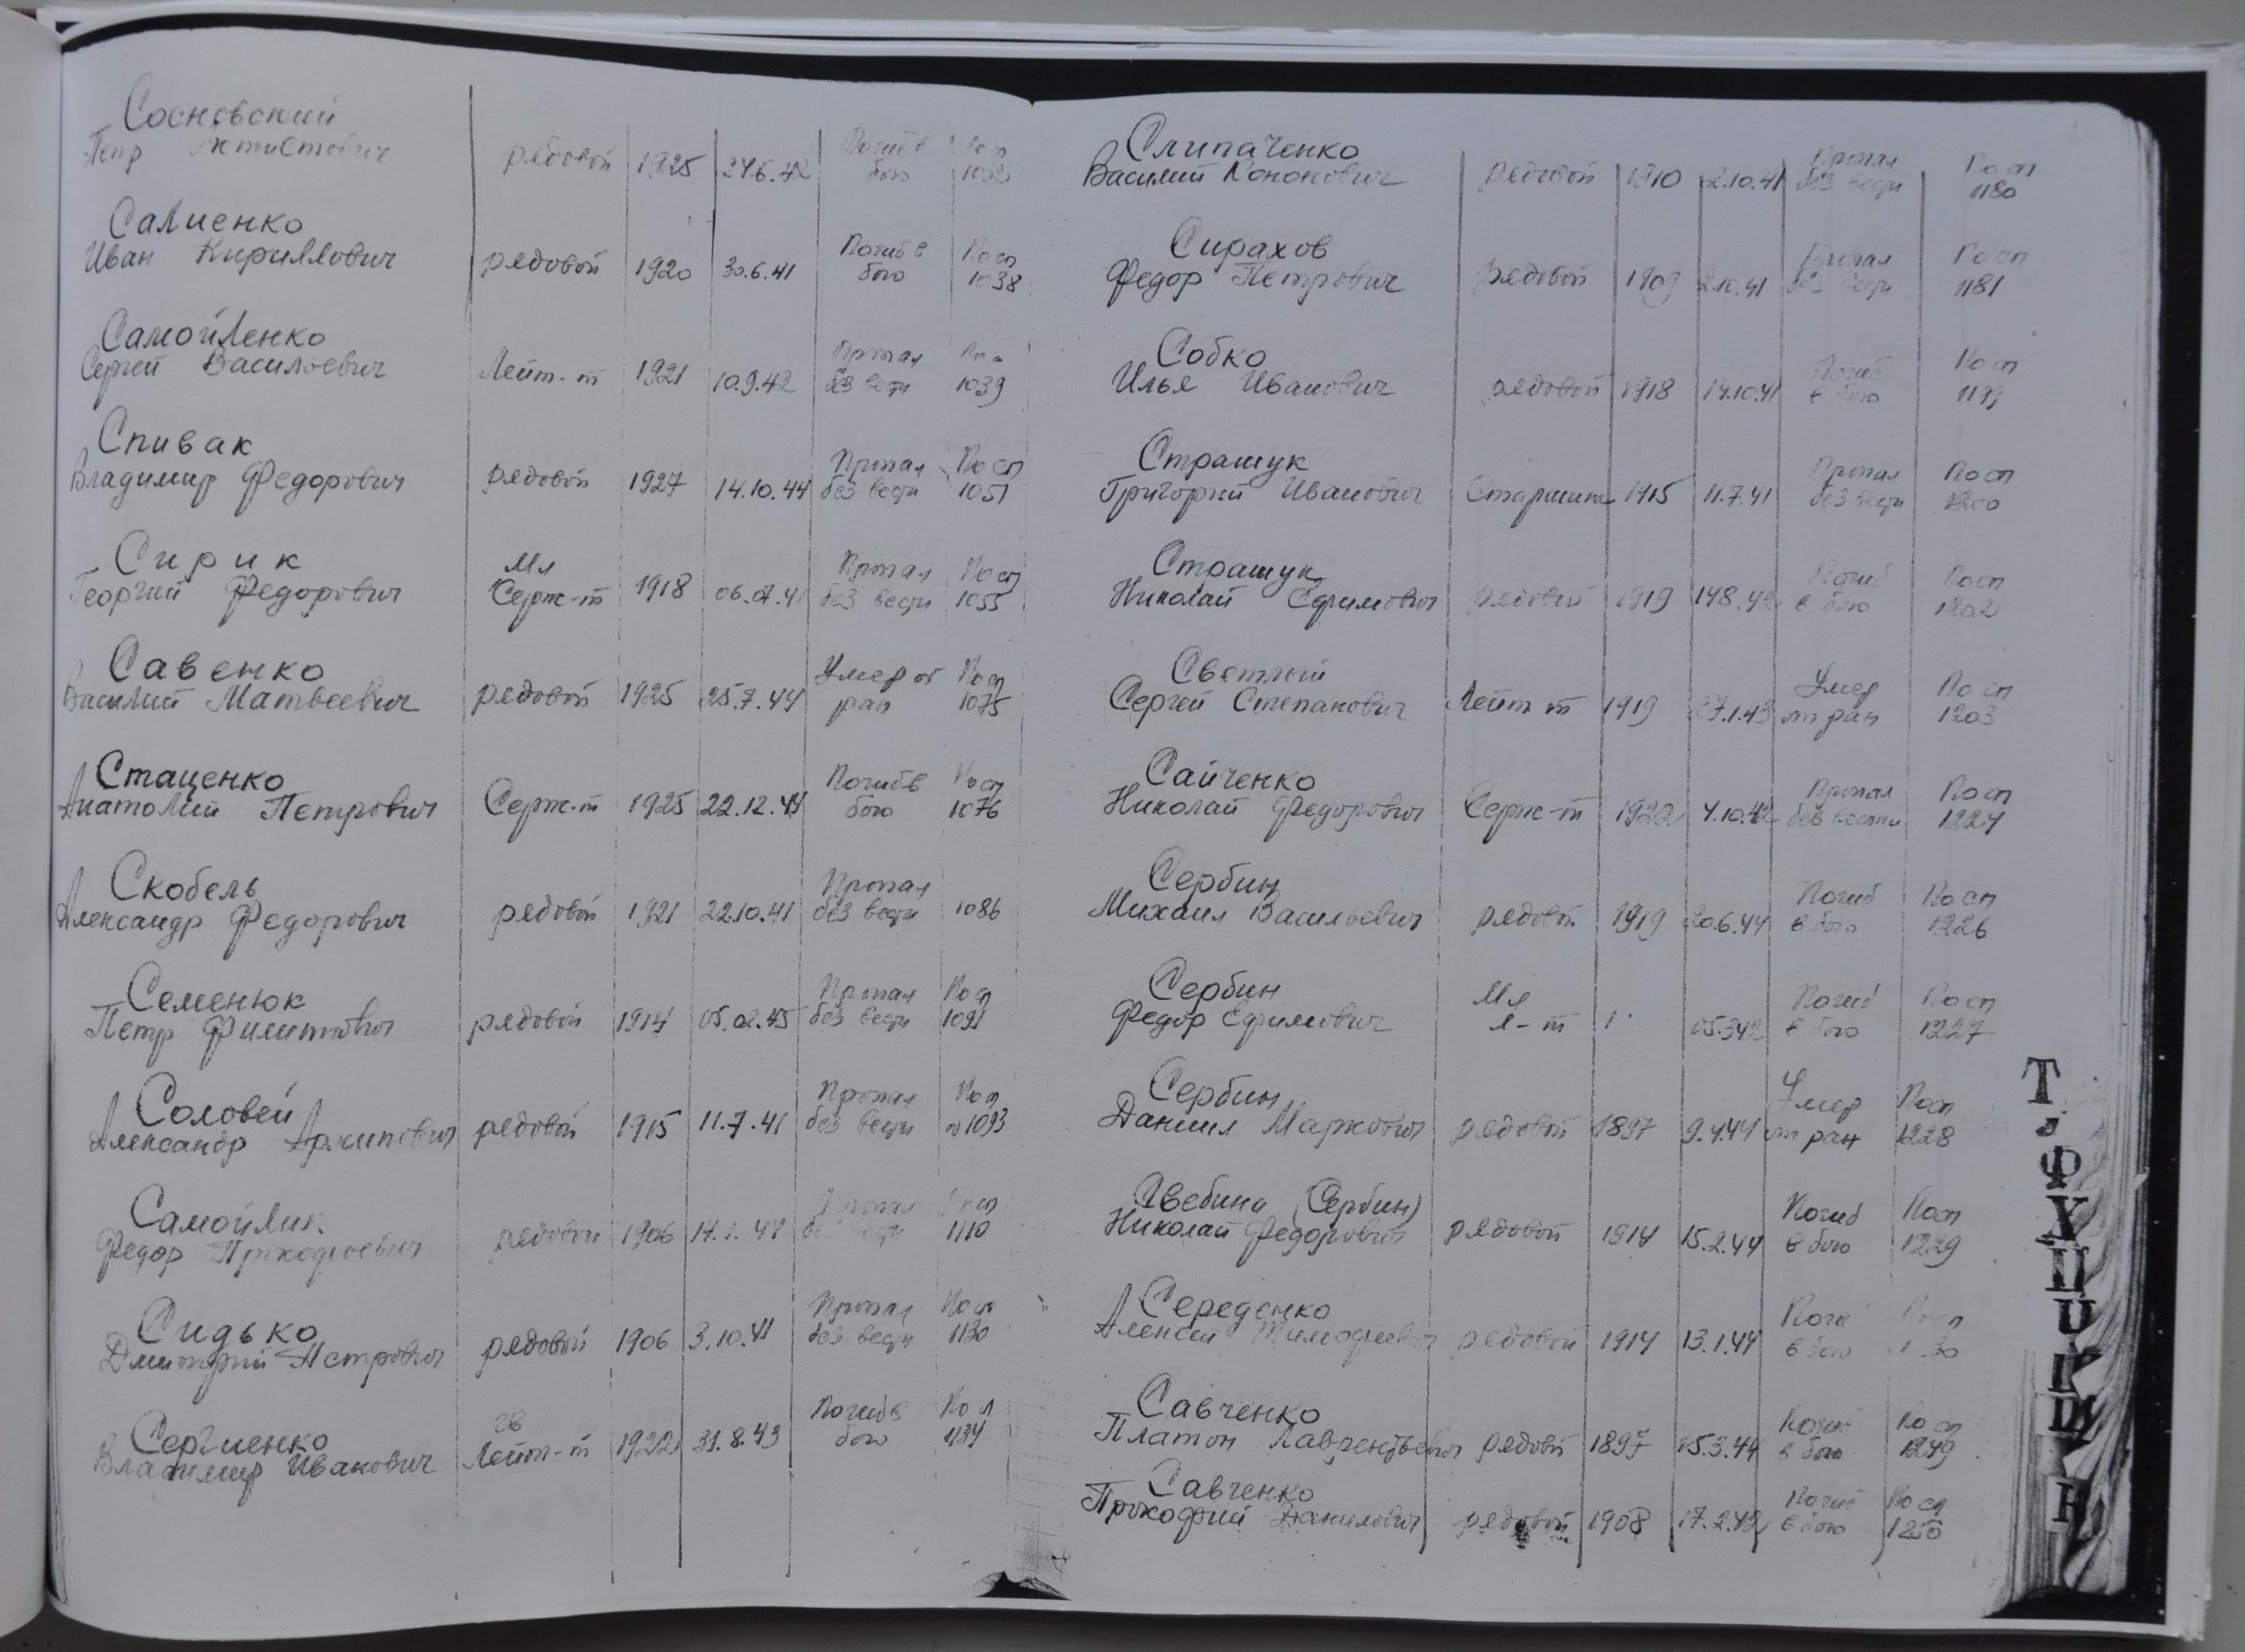 Сосновский
Петр рядовой 1925 24.6.42 Погиб в бою По сп
Салиенко
Иван Кириллович рядовой 1920 30.6.41 Погиб в бою По сп 1038
Самойленко
Сергей Васильевич Лейт-т 1921 10.9.42 Пропал без вести По сп 1039
Спивак
Владимир Федорович рядовой 1927 14.10.44 Пропал без вести По сп 1051
Сирик
Георгий Федорович Мл Серж-т 1918 Пропал без вести По сп 1055
Савенко
Василий Матвеевич рядовой 1925 25.7.44 Умер от ран По сп 1075
Стаценко
Анатолий Петрович Серж-т 1925 22.12.44 Погиб в бою По сп 1076
Скобель
Александр Федорович рядовой 1921 22.10.41 Пропал без вести 1086
Семенюк
Петр Филиппович рядовой 1914 05.02.45 Пропал без вести По сп 1091
Соловей
Александр Архипович рядовой 1915 11.7.41 Пропал без вести По сп 1093
Самойлик
Федор Прокофьевич рядовой 1906 Пропал без вести По сп 1110
Сидько
Дмитрий Петрович рядовой 1906 3.10.41 Пропал без вести По сп 1130
Сергиенко
Владимир Иванович гв Лейт-т 1922 31.8.43 Погиб в бою По сп 1134
Слипаченко
Василий Кононович рядовой 1910 2.10.41 Пропал без вести По сп 1180
Сирахов
Федор Петрович рядовой 1909 2.10.41 Пропал без вести По сп 1181
Собко
Илья Иванович рядовой 1918 14.10.41 Погиб в бою По сп 1199
Страшук
Григорий Иванович Старшина 1915 11.7.41 Пропал без вести По сп 1200
Страшук
Николай Ефимович рядовой 1919 14.8.42 Погиб в бою По сп 1202
Светлый
Сергей Степанович Лейт-т 1919 27.1.43 Умер от ран По сп 1203
Сайченко
Николай Федорович Серж-т 1922 4.10.42 Пропал без вести По сп 1224
Сербин
Михаил Васильевич рядовой 1919 20.6.44 Погиб в бою По сп 1226
Сербин
Федор Ефимович Мл л-т 05.3.42 Погиб в бою По сп 1227
Сербин
Даниил Маркович рядовой 1897 9.4.44 Умер от ран По сп 1228
(Сербин)
Николай Федорович рядовой 1914 15.2.44 Погиб в бою По сп 1229
Середенко
Алексей Тимофеевич рядовой 1914 13.1.44 Погиб в бою
Савченко
Платон Лаврентьевич рядовой 1897 Погиб в бою По сп 1249
Савченко
Прокофий Данилович рядовой 1908 17.2.42 Погиб в бою По сп 1250
Т
Ф
Х
Ц